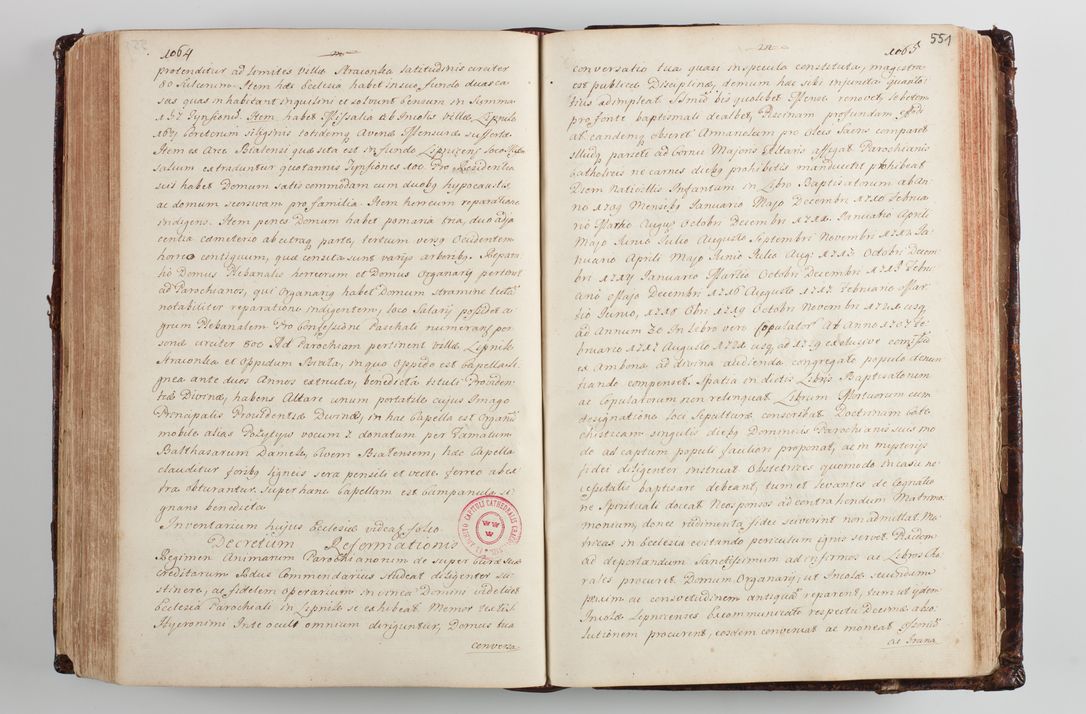 1064
protenditur ad limites villæ Straconka latitudinis circiter
80 sulcorum. Item hæc Ecclesia habet in suo fundo duas ca-
sas quas inhabitant inquilini et solvunt Censum in summa
Tynfonis. Item habet Missalia ab Incolis Villæ Lipnik
Coretorum siliginis totidemq Avenæ Mensuræ
Item ex Arce Bialensi quæ sita est in fundo loco Missa-
lium extraduntur quotannis Tynfones 100 Pro Residentia
sui habet Domum satis commodam cum duobq hypocaustis
ac domum seorsivam pro familia. Item horreum reparatione
indigens. Item penes Domum habet pomaria tria, duo adja-
centia cæmeterio ab utraq parte, tertium versq Occidentem
horreo contiguum, quæ consita sunt varijs arboribq. Repara-
tio Domus Plebanalis horreorum et Domus Organarij pertinet
ad Parochianos, qui Organariq habet Domum stramine tectã
notabiliter reparatione indigentem, loco Salarij possidet a-
grum Plebanalem Pro Confessione Paschali numerantur per-
sonæ circiter 800 Ad Parochiam pertinent villæ Lipnik
Straconka et Oppidum Biała, in quo Oppido est Capella li-
gnea ante duos Annos extructa, benedicta tituli Providen-
tiæ Divinæ, habens Altare unum portatile cujus Imago
Principalis Providentiæ Divinæ, in hac Capella est Organũ
mobile alias Pozytyw vocum 7 donatum per Famatum
Balthasarum Damek, Civem Bialensem, hæc Capella
clauditur foribq ligneis sera pensili et vecte ferreo ab ex-
tra obturantur. Super hanc Capellam est Campanula si-
gnans benedicta
Inventarium hujus Ecclesiæ videatr folio
Decretum Reformationis
Regimen Animarum Parochianorum de super Curæ suæ
creditarum Rdus Commendarius studeat diligenter su-
stinere, ac fidelem operarium in vinea Domini videlicet
Ecclesia Parochiali in Lipnik se exhibeat. Memor textus
Hyeronimi In te oculi omnium diriguntur, Domus tua
conversa
1065
551
conversatio tua quasi in specula constituta, magistra
est publicæ Disciplinæ, demum hæc sibi injuncta quanto-
tius adimpleat. Ssmũ bis quolibet Mense renovet, lebetem
pro fonte baptismali dealbet, Piscinam profundam
et eandemq obseret Armariolum pro Oleis Sacris comparet
illudq parieti ad Cornu Majoris Altaris affigat Parochianis
Catholicis ne carnes diebq prohibitis manducent prohibeat
Diem Nativitatis Infantum in Libro Baptisatorum ab An-
no 1709 Mensibq Januario Majo Decembri 1710 Februa-
rio Martio Augus Octobri Decembri 1711 Januario Aprili
Majo Junio Julio Augusto Septembri Novembri 1712 Ja-
nuario Aprili Majo Junio Julio Aug: 1713 Octobri Decem-
bri 1714 Januario Martio Octobri Decembri 1715 Febru-
ario Majo Decembri 1716 Augusto 1717 Februario Mar-
tio Junio, 1718 Obri 1719 Octobri Novembri 1721 usq
ad Annum 30 In Libro vero Copulator Ab Anno 1707 Fe-
bruario 1717 Augusto 1721 usq ad 1729 exclusive
ex Ambona ad divina audienda congregato populo denun-
tiando compenset. Spatia in dictis Libris Baptisatorum
ac Copulatorum non relinquat Librum Mortuorum cum
designatione loci Sepulturæ conscribat Doctrinam Cate-
chisticam singulis diebq Dominicis Parochianis suis mo-
do ad captum populi faciliori proponat, ac in mysterijs
fidei diligenter instruat Obstetrices quomodo in casu ne-
cessitatis baptisare debeant, tum et levantes de Cognatio-
ne Spirituali doceat Neosponsos ad contrahendum Matrimo-
monium, donec rudimenta fidei sciverint non admittat Ma-
trices in Ecclesia evitando periculum ignis servet Pixidem
ad deportandum Sanctissimum ad infirmos ac Libros Cho-
rales procuret. Domum Organarij, ut Incolæ secundum
praxim ac consvetudinem antiquã reparent, tum ut ijdem
Incolæ Lipnicenses Excommunicati respectu Decimæ abso-
lutionem procurent, eosdem conveniat ac moneat
ac Prana